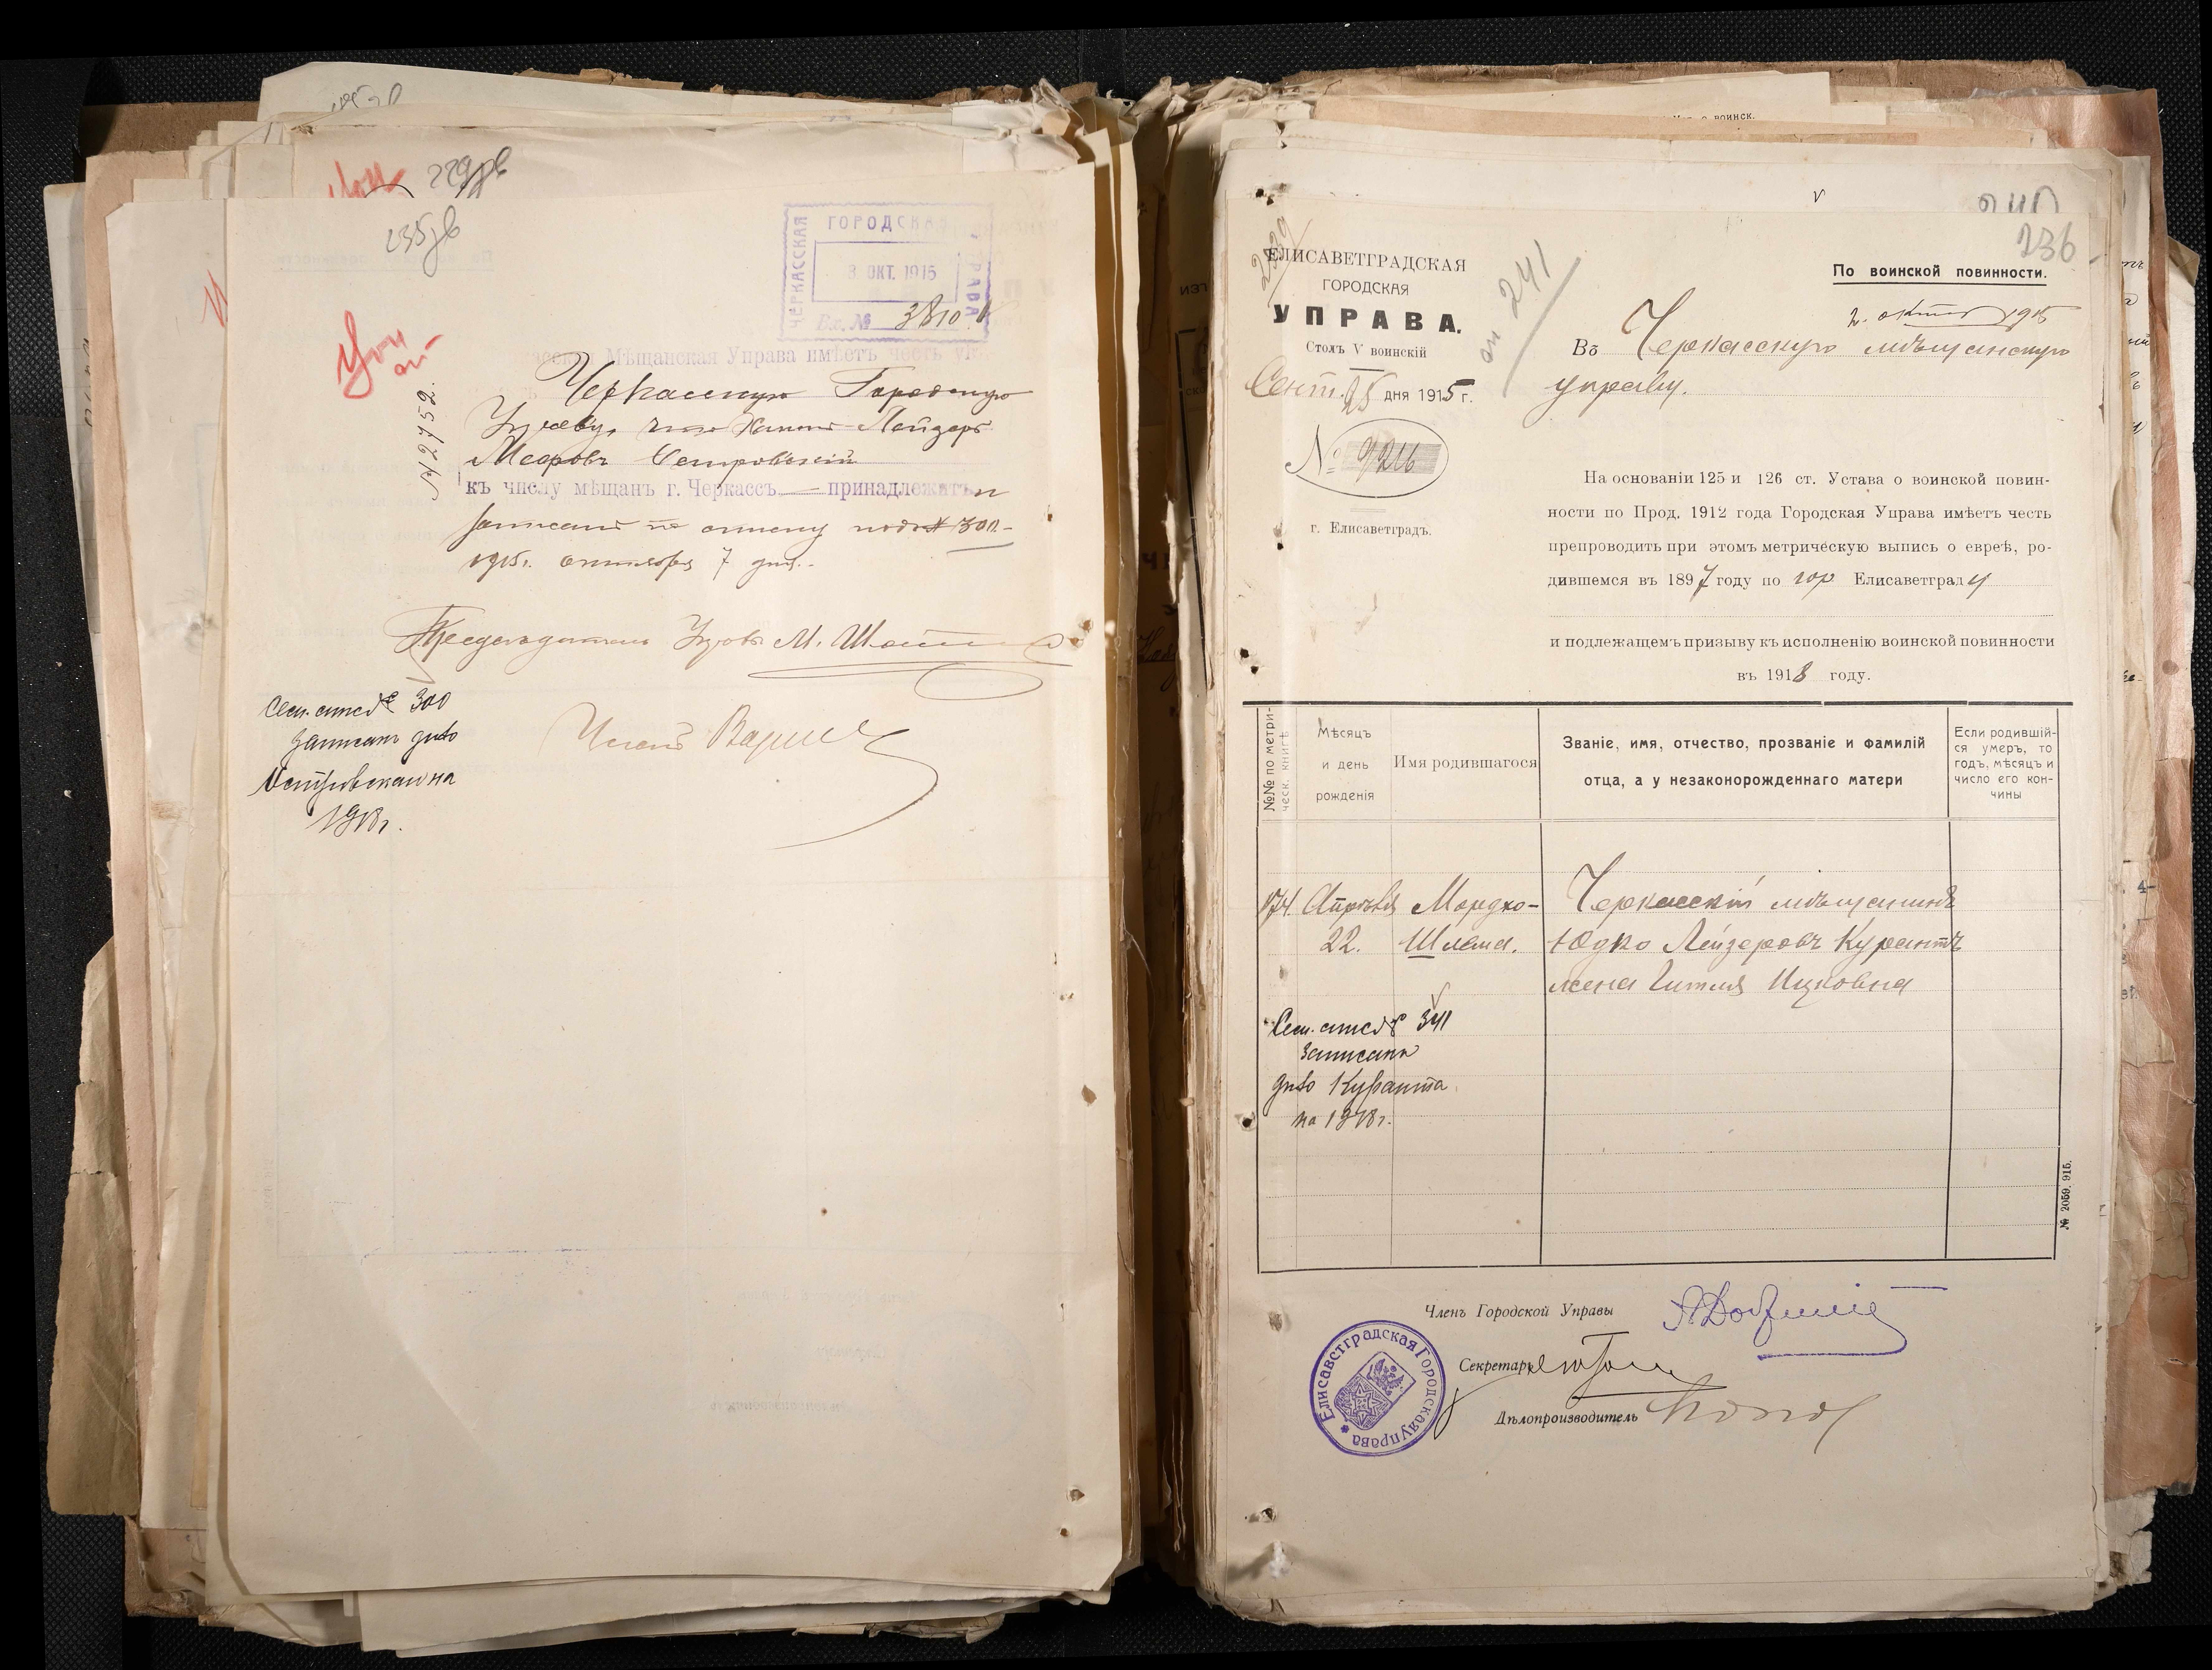 229 об
235 об
ЧЕРКАССКАЯ ГОРОДСКАЯ УПРАВА
8 ОКТ. 1915
Вх. № 3810
№ 2752.
Мѣщанская Управа имѣетъ честь
Черкасскую Городскую
Управу, что Лейзеръ
Мееровъ Островскій
къ числу мѣщанъ г. Черкассъ — принадлежитъ и
записанъ по списку подъ № 300.
1915 г. октября 7 дня.
Предсѣдатель Управы М.
Сем. спис. № 300
записанъ
Островскаго на
1918 г.
Членъ
236
ЕЛИСАВЕТГРАДСКАЯ
ГОРОДСКАЯ
УПРАВА.
Столъ V воинскій
Сент. 25 дня 1915 г.
№ 9216
г. Елисаветградъ.
241
По воинской повинности.
2 октяб 1915
Въ Черкасскую мѣщанскую
управу.
На основаніи 125 и 126 ст. Устава о воинской повин-
ности по Прод. 1912 года Городская Управа имѣетъ честь
препроводить при этомъ метрическую выпись о евреѣ, ро-
дившемся въ 1897 году по гор Елисаветграду
и подлежащемъ призыву къ исполненію воинской повинности
въ 1918 году.
№№ по метри-
ческ. книгѣ
Мѣсяцъ
и день
рожденія
Имя родившагося
Званіе, имя, отчество, прозваніе и фамилій
отца, а у незаконорожденнаго матери
Если родившій-
ся умеръ, то
годъ, мѣсяцъ и
число его кон-
чины
174. Апрѣля Мордко- Черкасскій мѣщанинъ
22. Шлема. Юдко Лейзеровъ Курантъ
жена Гитля Ицковна
Сем. спис. № 341
записанъ
Куранта
на 1918 г.
№ 2059. 915.
Членъ Городской Управы
Секретарь
Дѣлопроизводитель
Елисаветградская Городская управа